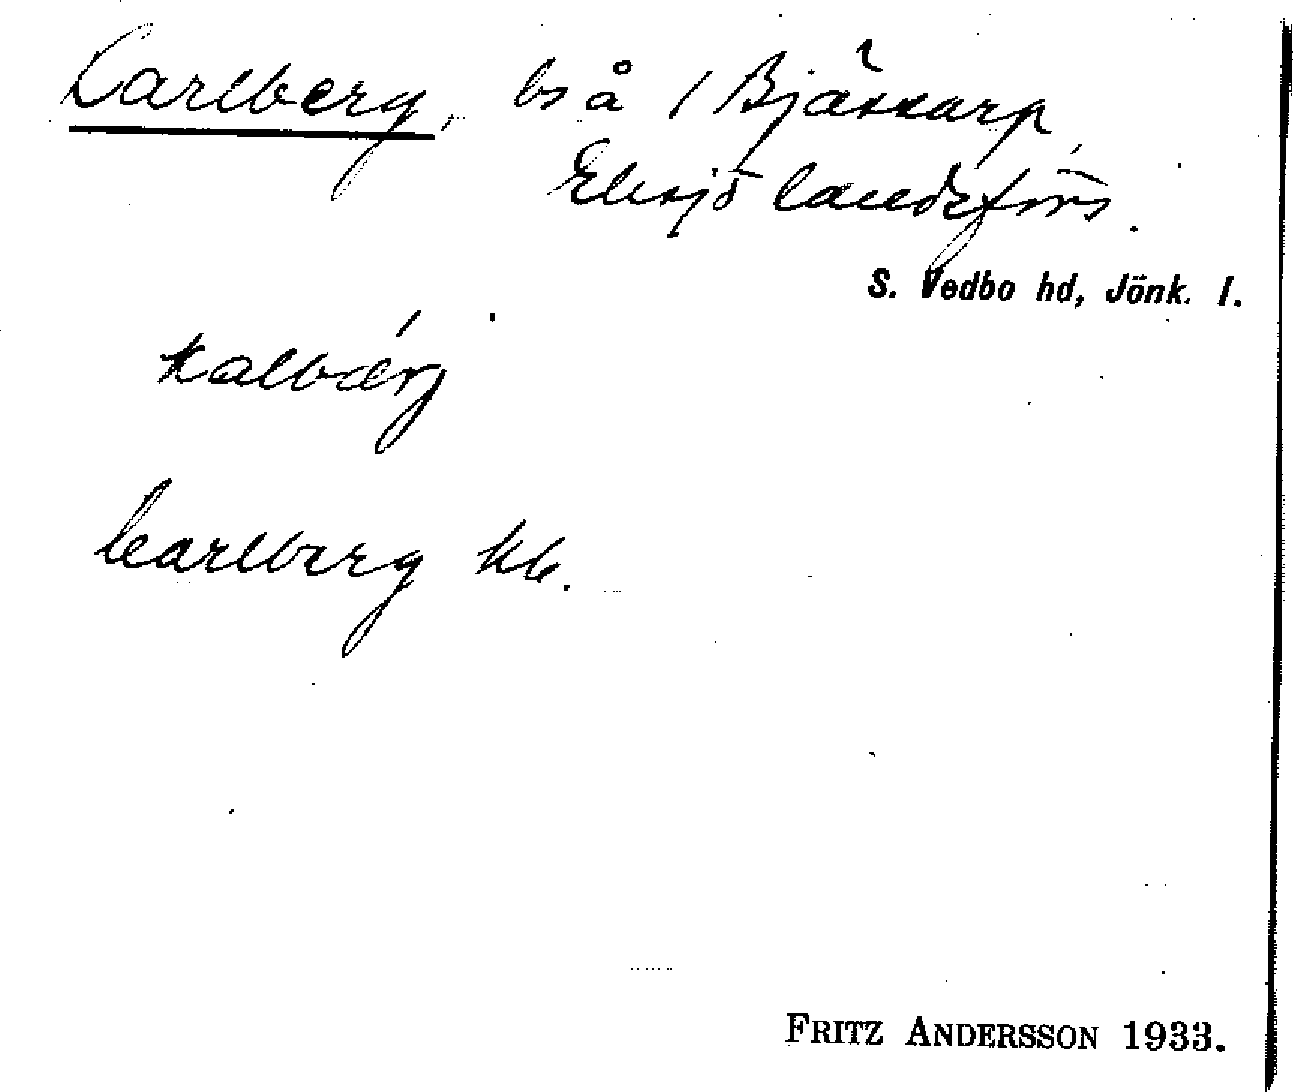 Carlberg, bs å 1 Bjäskarp
Eksjö landsförs.
S. Vedbo hd, Jönk. l.
kalbærj
Carlberg kb.
FRITZ ANDERSSON 1933.